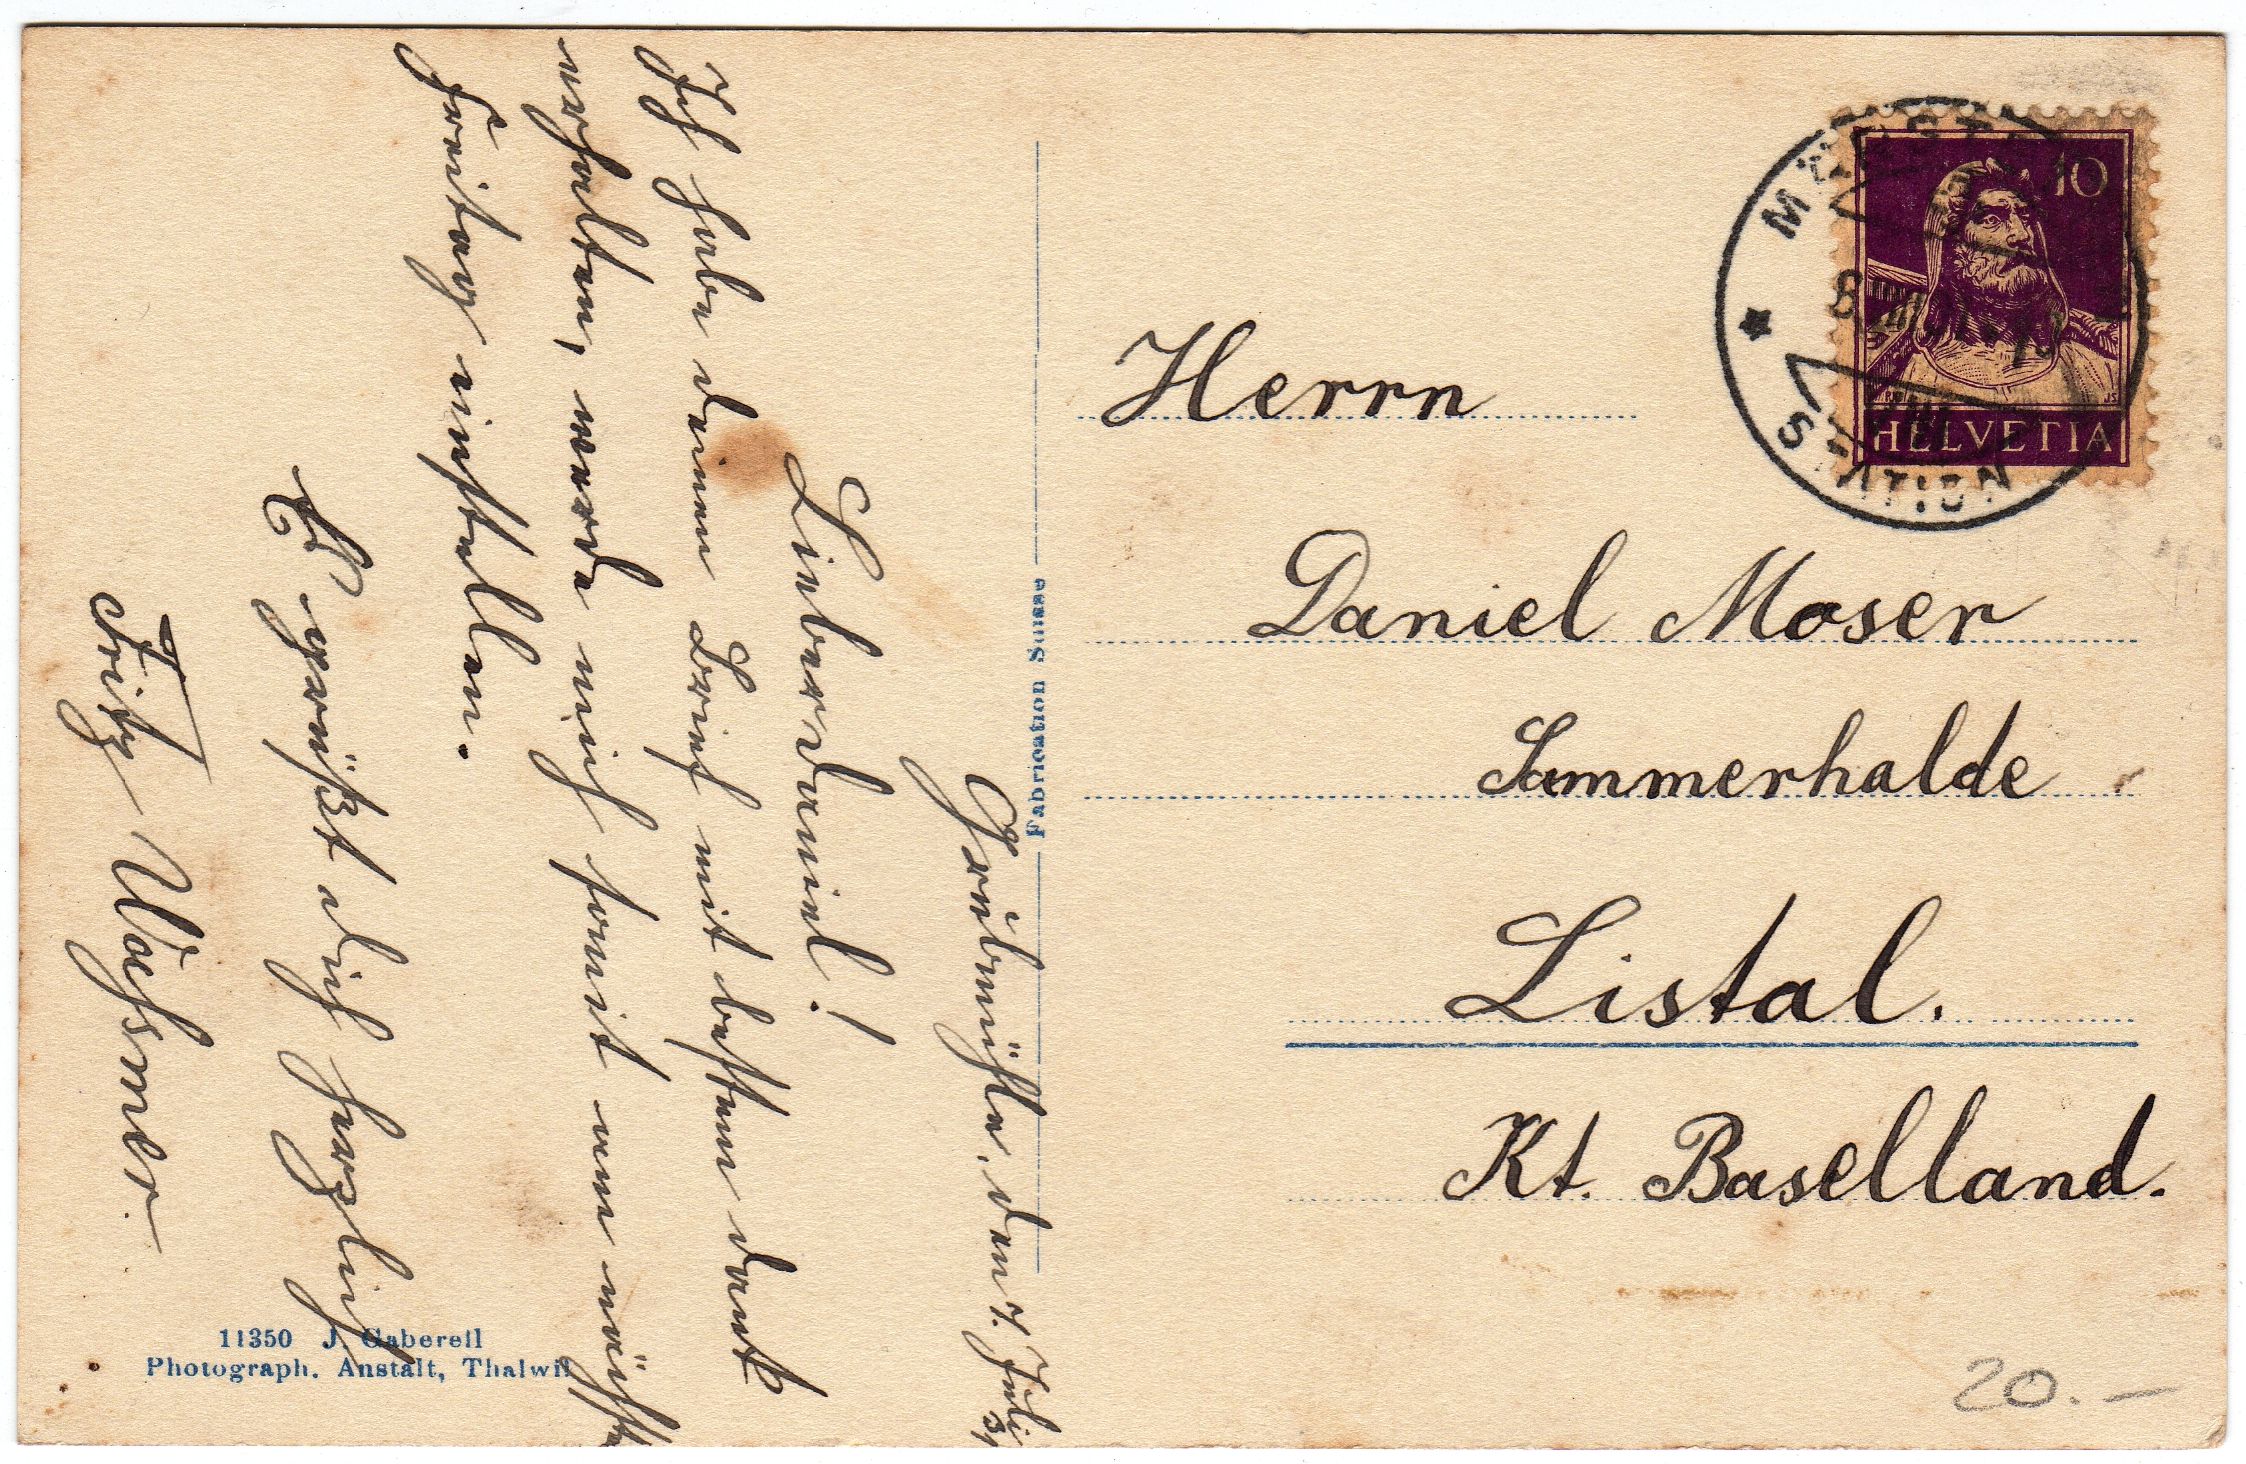 Grabmühle, den 7. Juli
31
Lieber Daniel!
Ich habe deinen Brief mit bestem Dank
erhalten, werde mich somit am nächsten
Freitag einstellen.
Es grüßt dich herzlich
Fritz Wassmer
11350 J. Gaberell
Photograph. Anstalt, Thalwil
Fabrication Suisse
STATION
10
HELVETIA
Herrn
Daniel Moser
Sammerhalde
Listal.
Kt. Baselland.
20.—